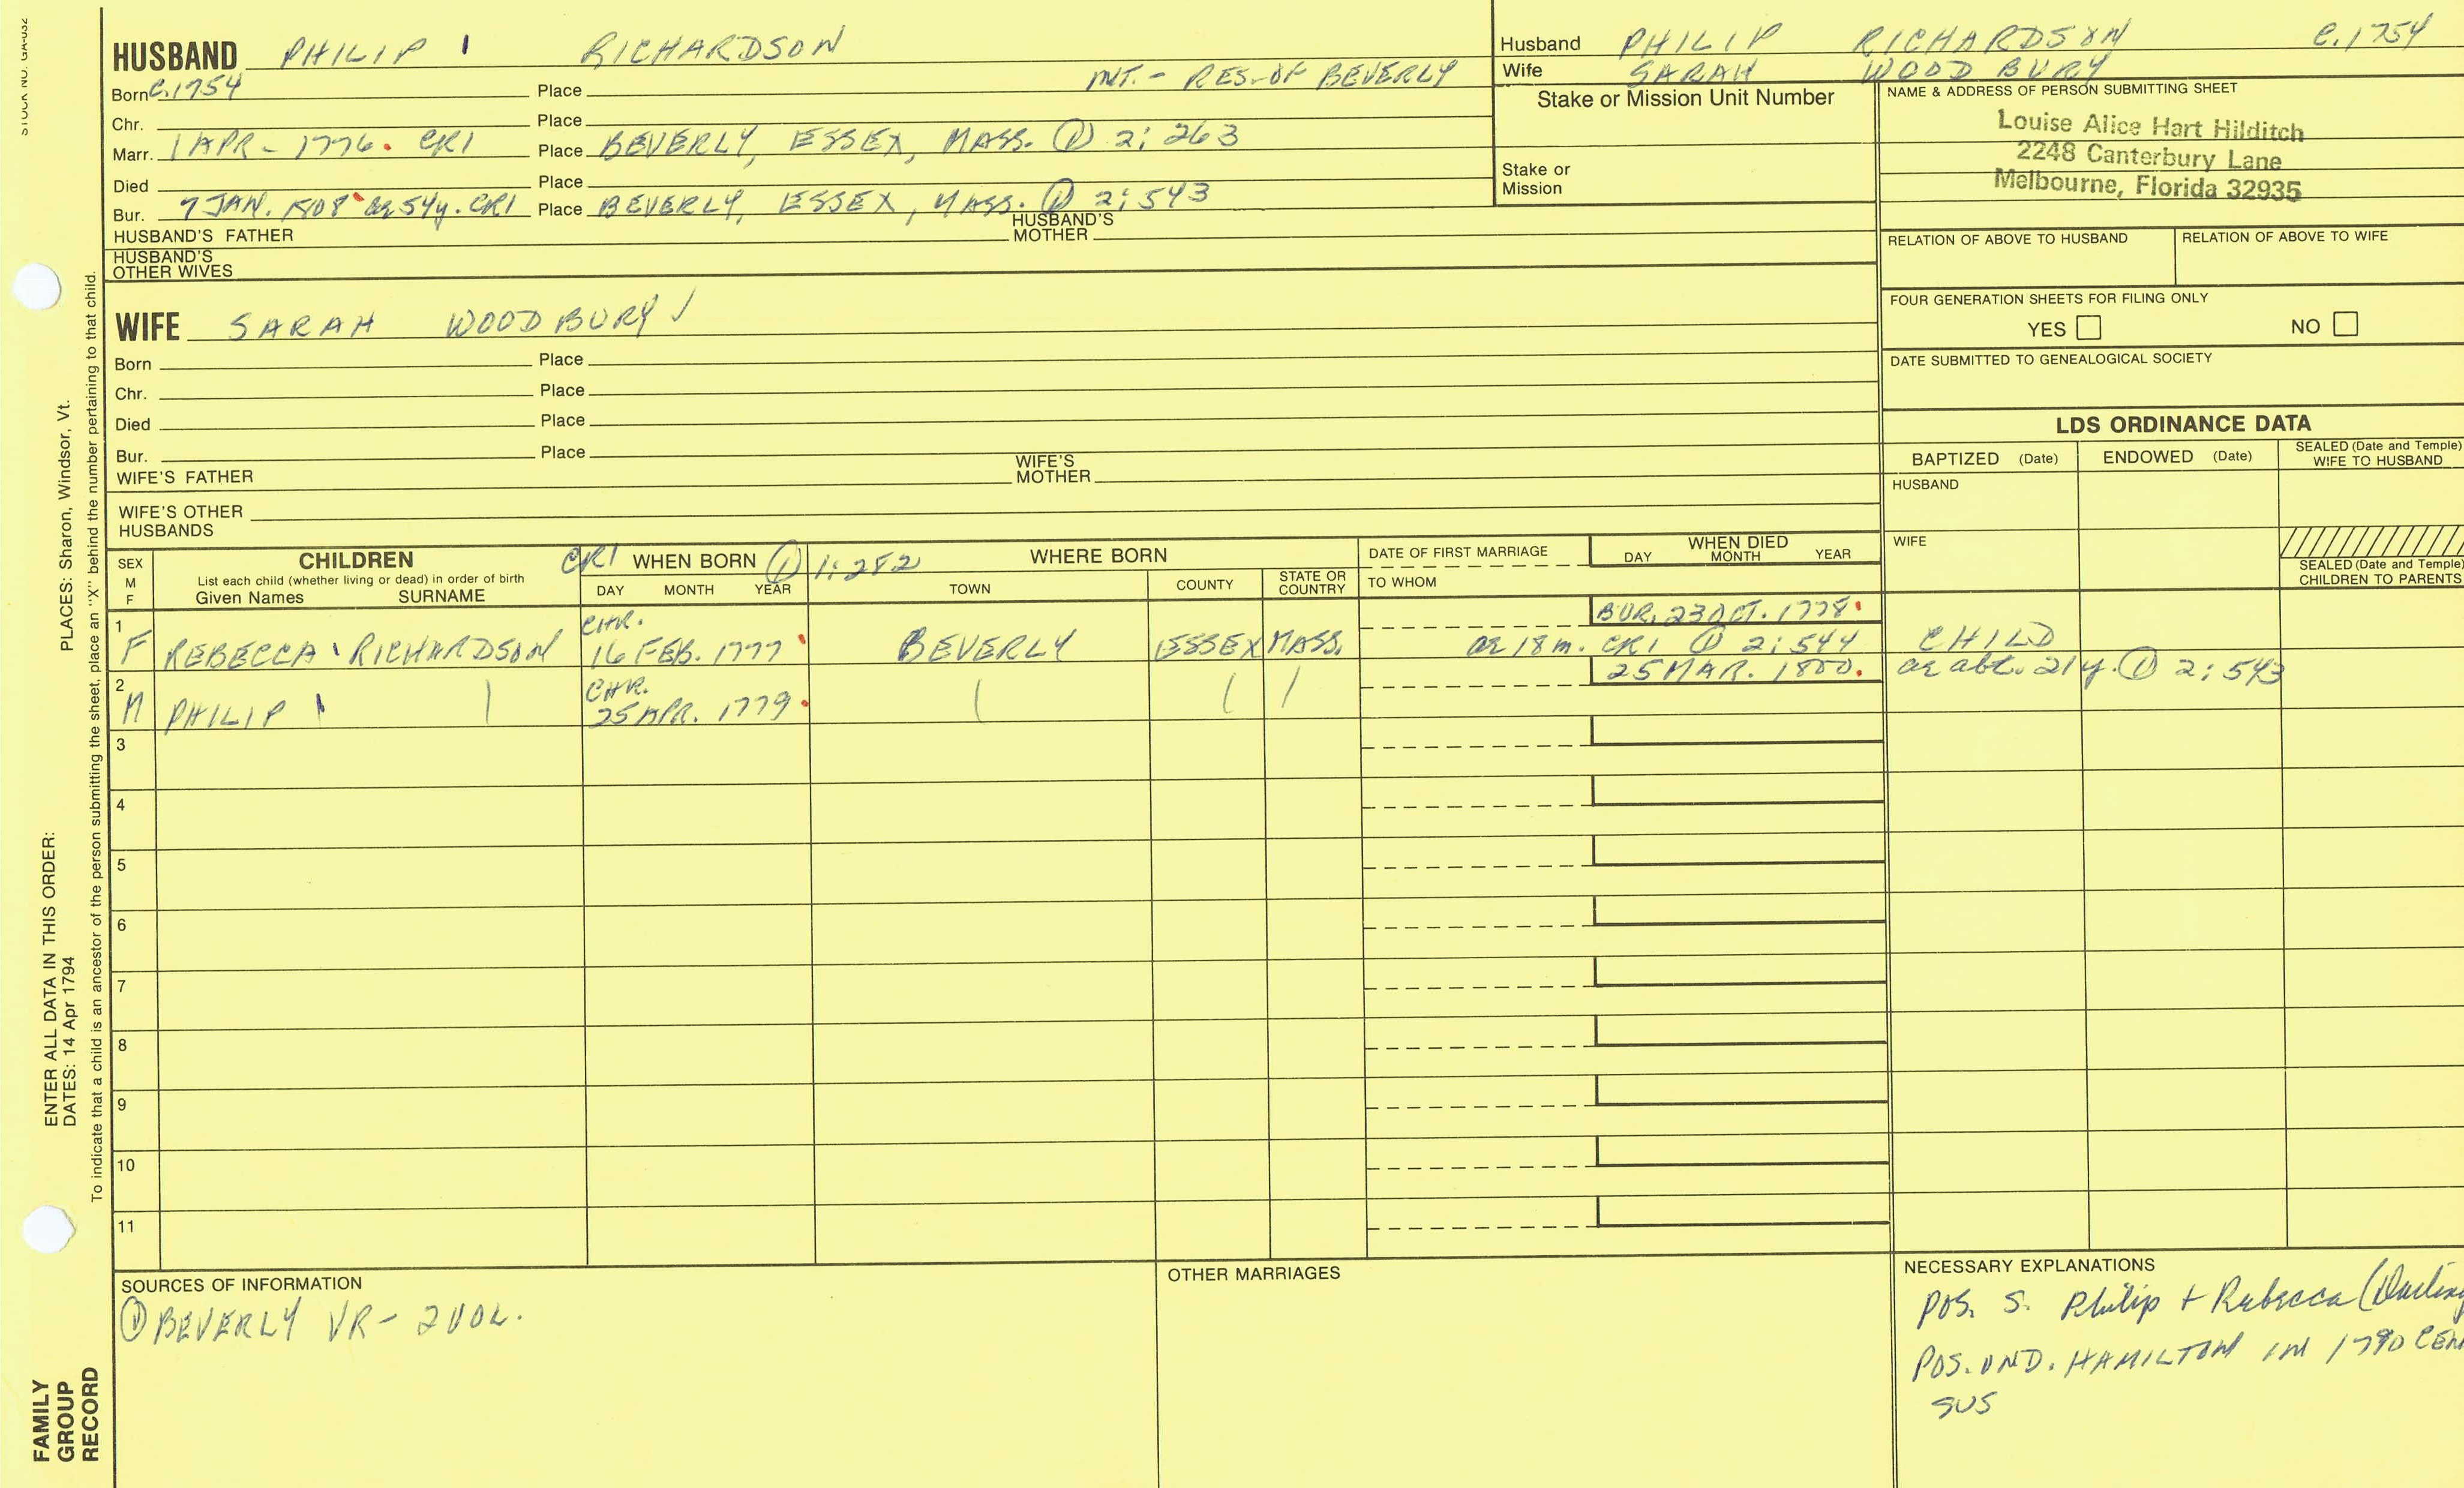 STOCK NO. GA-032
HUSBAND PHILIP RICHARDSON
INT. - RES. OF BEVERLY
Born C.1754 Place
Chr. Place
Marr. 1 APR - 1776. CR1 Place BEVERLY, ESSEX, MASS. ① 2:263
Died Place
Bur. 7 JAN. 1808 ae 54y. CR1 Place BEVERLY, ESSEX, MASS. ① 2:543
HUSBAND'S FATHER HUSBAND'S MOTHER
HUSBAND'S OTHER WIVES
Husband PHILIP RICHARDSON C.1754
Wife SARAH WOODBURY
Stake or Mission Unit Number
Stake or
Mission
NAME & ADDRESS OF PERSON SUBMITTING SHEET
Louise Alice Hart Hilditch
2248 Canterbury Lane
Melbourne, Florida 32935
RELATION OF ABOVE TO HUSBAND RELATION OF ABOVE TO WIFE
FOUR GENERATION SHEETS FOR FILING ONLY
YES NO
DATE SUBMITTED TO GENEALOGICAL SOCIETY
WIFE SARAH WOODBURY ✓
Born Place
Chr. Place
Died Place
Bur. Place
WIFE'S FATHER WIFE'S MOTHER
WIFE'S OTHER
HUSBANDS
LDS ORDINANCE DATA
BAPTIZED (Date) ENDOWED (Date) SEALED (Date and Temple) WIFE TO HUSBAND
HUSBAND
WIFE
SEALED (Date and Temple) CHILDREN TO PARENTS
SEX M F
CHILDREN
List each child (whether living or dead) in order of birth
Given Names SURNAME
CR1 WHEN BORN ① 1:282 WHERE BORN
DAY MONTH YEAR TOWN COUNTY STATE OR COUNTRY
DATE OF FIRST MARRIAGE
TO WHOM
WHEN DIED
DAY MONTH YEAR
1 CHR. BUR. 23 OCT. 1778.
F REBECCA RICHARDSON 16 FEB. 1777 BEVERLY ESSEX MASS. ae 18m. CR1 ① 2:544 CHILD
2 CHR. 25 MAR. 1800. ae abt. 21y. ① 2:543
M PHILIP 25 APR. 1779.
3
4
5
6
7
8
9
10
11
SOURCES OF INFORMATION
① BEVERLY VR - 2 VOL.
OTHER MARRIAGES
NECESSARY EXPLANATIONS
POS. S. Philip + Rebecca
POS. UND. HAMILTON IN 1790 CEN
SUS
PLACES: Sharon, Windsor, Vt.
ENTER ALL DATA IN THIS ORDER:
DATES: 14 Apr 1794
To indicate that a child is an ancestor of the person submitting the sheet, place an "X" behind the number pertaining to that child.
FAMILY
GROUP
RECORD